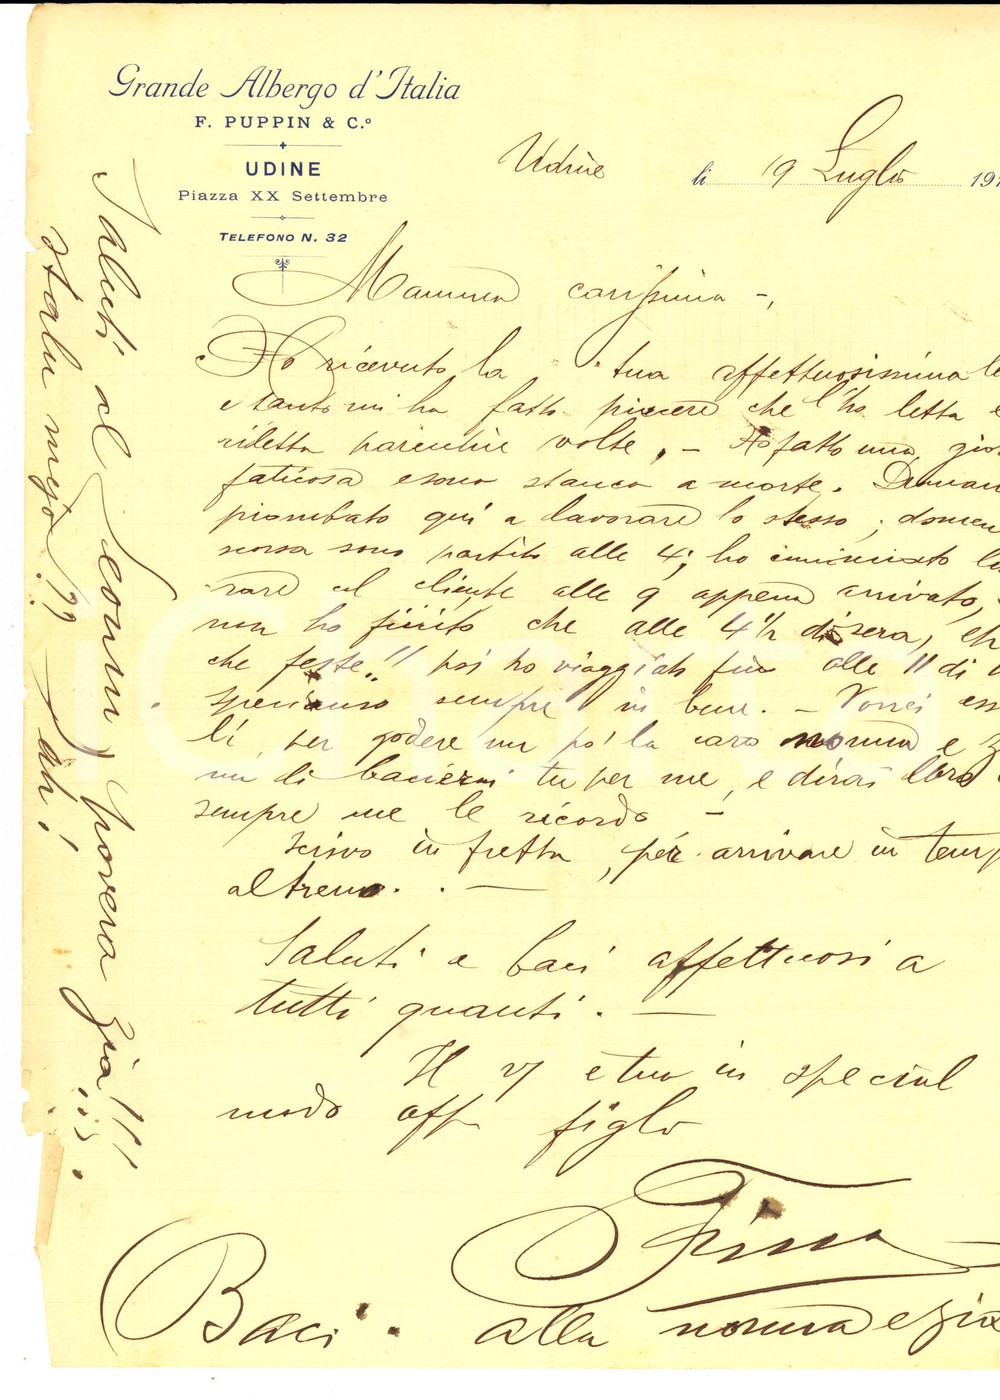 Grande Albergo d'Italia
F. PUPPIN & C.º
UDINE
Piazza XX Settembre
TELEFONO N. 32
Udine li 19 Luglio 191
Mamma carissima -,
Ho ricevuto la tua affettuosissima le
e tanto mi ha fatto piacere che l'ho letta e
riletta parecchie volte, - Ho fatto una gior
faticosa e sono stanco a morte. Domani
piombato qui a lavorare lo stesso; domen
scorsa sono partito alle 4; ho incominciato la
rare il cliente alle 9 appena arrivato,
non ho finito che alle 4 ½ di sera, eh
che feste!! poi ho viaggiato fin alle 11 di
sperando sempre in bene. - Vorrei ess
lì per godere un po' la cara nonna e z
mi di baciarmi tu per me, e dirai loro
sempre me le ricordo -
Scrivo in fretta, per arrivare in temp
al treno. . —
Saluti e baci affettuosi a
tutti quanti. —
Il e tuo in special
modo aff figlio
Baci. alla nonna e zia
Saluti al Leoni, povera zia!!!
stalu mejo?? ah!